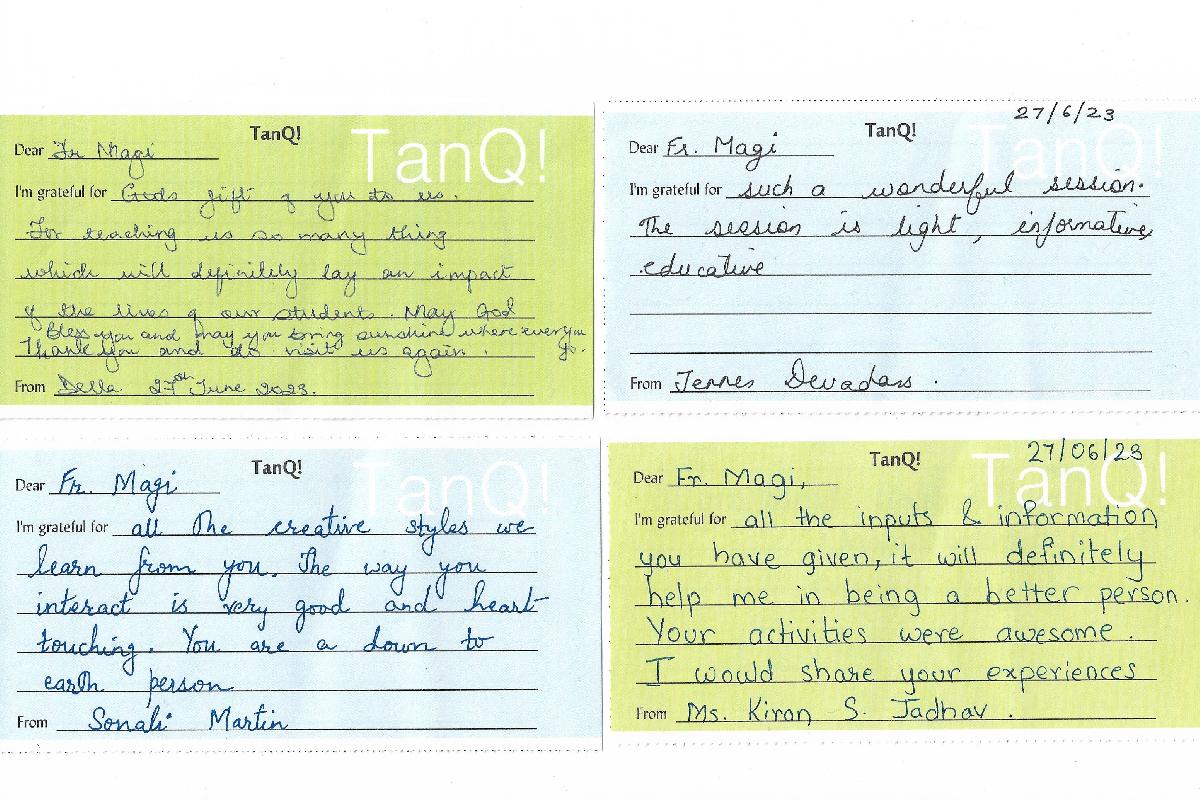 TanQ!
TanQ!
Dear Fr Magi
I'm grateful for Gods gift of you to us.
For teaching us so many thing
which will definitely lay an impact
of the lives of our students. May God
Bless you and may you bring sunshine where ever you
go.
Thank you and do visit us again.
From Della 27th June 2023.
27/6/23
TanQ!
TanQ!
Dear Fr. Magi
I'm grateful for such a wonderful session.
The session is light, informative,
educative
From Jennes Devadass.
TanQ!
TanQ!
Dear Fr. Magi
I'm grateful for all the creative styles we
learn from you. The way you
interact is very good and heart
touching. You are a down to
earth person
From Sonali Martin
27/06/23
TanQ!
TanQ!
Dear Fr. Magi,
I'm grateful for all the inputs & information
you have given, it will definitely
help me in being a better person.
Your activities were awesome.
I would share your experiences
From Ms. Kiran S. Jadhav.